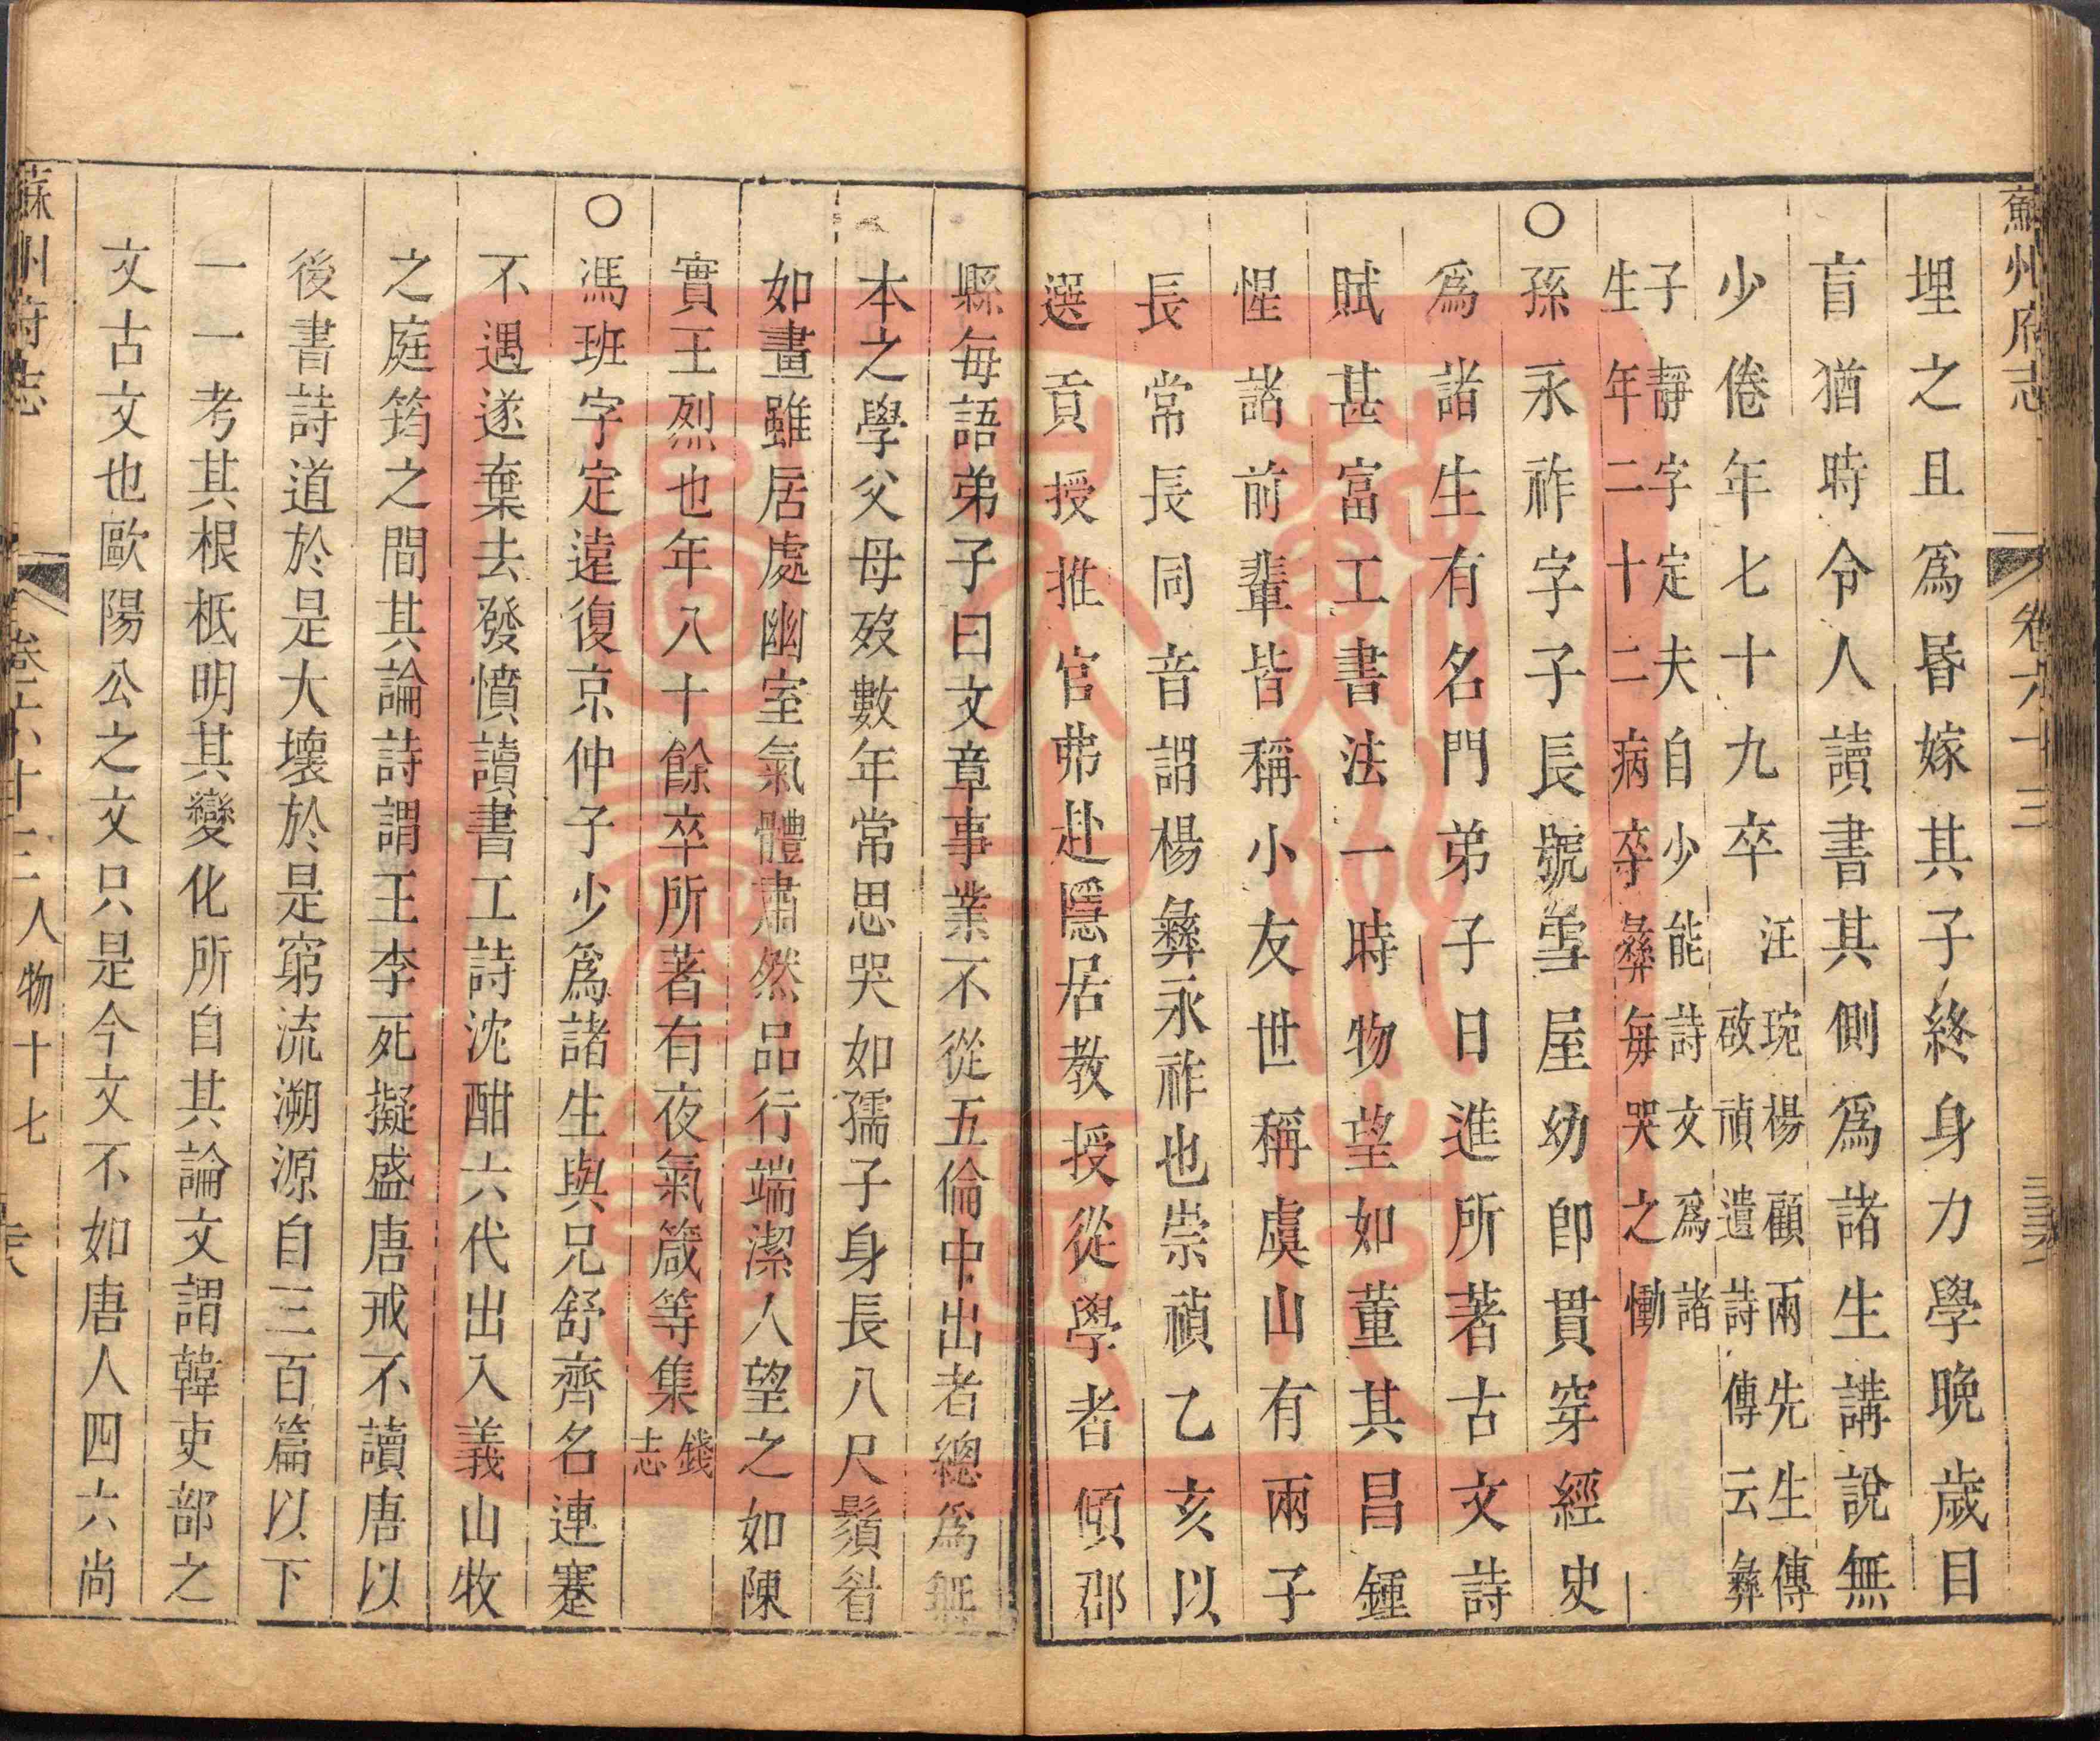 蘇州府志 卷六十三
埋之且爲昏嫁其子終身力學晚歲目
盲猶時令人讀書其側爲諸生講說無
少倦年七十九卒
汪琬楊顧兩先生傳
啟禎遺詩傳云彝
子靜字定夫自少能詩文爲諸
生年二十二病卒彝每哭之慟
○孫永祚字子長號雪屋幼卽貫穿經史
爲諸生有名門弟子日進所著古文詩
賦甚富工書法一時物望如董其昌鍾
惺諸前輩皆稱小友世稱虞山有兩子
長常長同音謂楊彝永祚也崇禎乙亥以
選貢授推官弗赴隱居教授從學者傾郡
縣每語弟子曰文章事業不從五倫中出者總爲無
本之學父母歿數年常思哭如孺子身長八尺鬚眉
如畫雖居處幽室氣體肅然品行端潔人望之如陳
實王烈也年八十餘卒所著有夜氣箴等集
錢
志
○馮班字定遠復京仲子少爲諸生與兄舒齊名連蹇
不遇遂棄去發憤讀書工詩沈酣六代出入義山牧
之庭筠之間其論詩謂王李死擬盛唐戒不讀唐以
後書詩道於是大壞於是窮流溯源自三百篇以下
一一考其根柢明其變化所自其論文謂韓吏部之
文古文也歐陽公之文只是今文不如唐人四六尚
蘇州府志 卷六十三人物十七